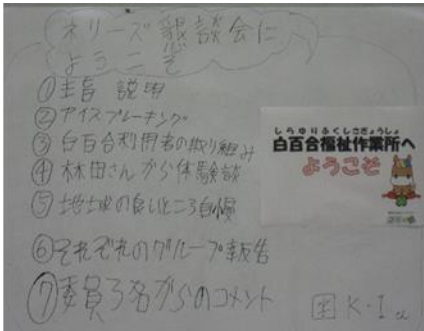 ネリーズ懇談会に
ようこそ
①主旨 説明
②アイスブレーキング
③白百合利用者の取り組み
④林田さんから体験談
⑤地域の良いところ自慢
⑥それぞれのグループ報告
⑦委員3名からのコメント
しらゆりふくしさぎょうしょ
白百合福祉作業所へ
ようこそ
字 K・Iさん